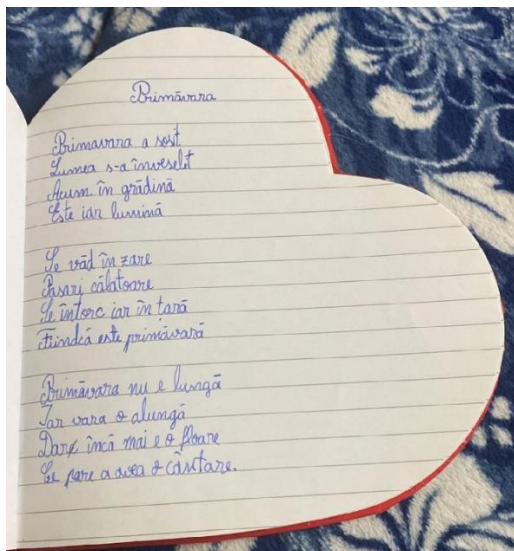 Primăvara
Primavara a sosit
Lumea s-a înveselit
Acum în grădină
Este iar lumină
Se văd în zare
Pasari călatoare
Se întorc iar în tară
Fiindcă este primăvară
Primăvara nu e lungă
Iar vara o alungă
Dar încă mai e o floare
Ce pare a avea o căutare.